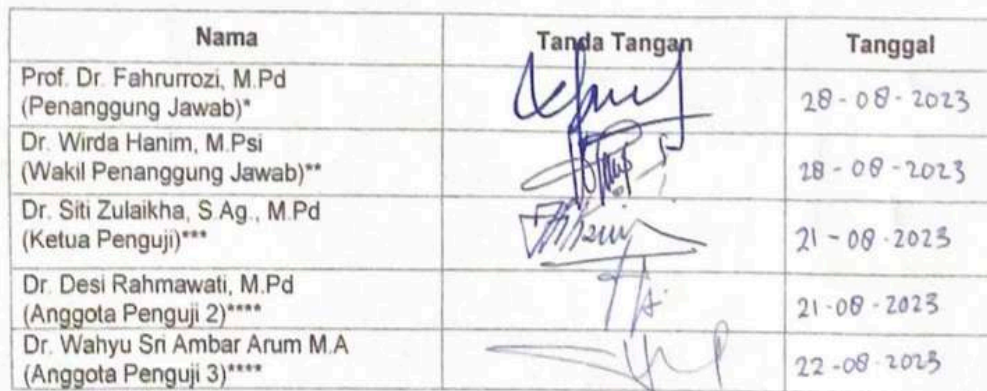 Nama Tanda Tangan Tanggal
Prof. Dr. Fahrurrozi, M.Pd
(Penanggung Jawab)* 28-08-2023
Dr. Wirda Hanim, M.Psi
(Wakil Penanggung Jawab)** 28-08-2023
Dr. Siti Zulaikha, S.Ag., M.Pd
(Ketua Penguji)*** 21-08-2023
Dr. Desi Rahmawati, M.Pd
(Anggota Penguji 2)**** 21-08-2023
Dr. Wahyu Sri Ambar Arum M.A
(Anggota Penguji 3)**** 22-08-2023